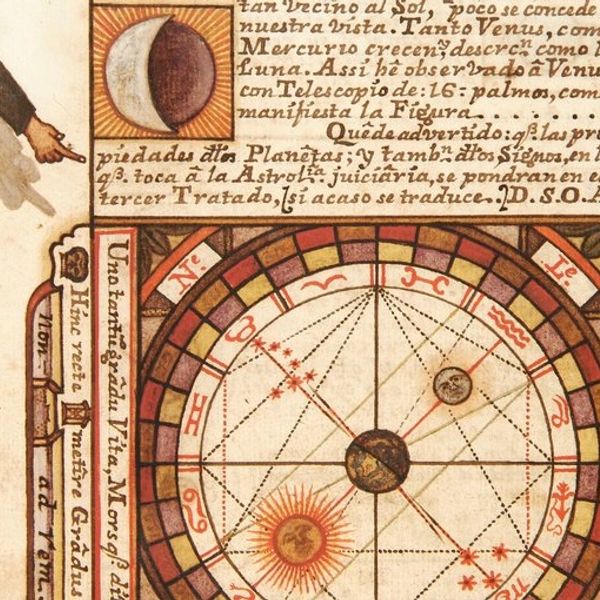 tan vecino al Sol, poco se concede
nuestra vista. Tanto Venus, com
Mercurio crecen, y descrcn como l
Luna. Assi hê observado â Venu
con Telescopio de: 16: palmos, com
manifiesta la Figura . . . . . . .
Quêde advertido: qͤ. las pro
piedades dłos Planêtas; y tambn. dłos Signos, en l
qͤ. toca â la Astrolia. juiciâria, se pondran en e
tercer Tratado, [si acaso se traduce..] D. S. O. A
Ne.
Le.
Uno tontûgrâdu Vita, Mors qͤ di
Hinc recta metîre Grâdus
Non
ad Vem.